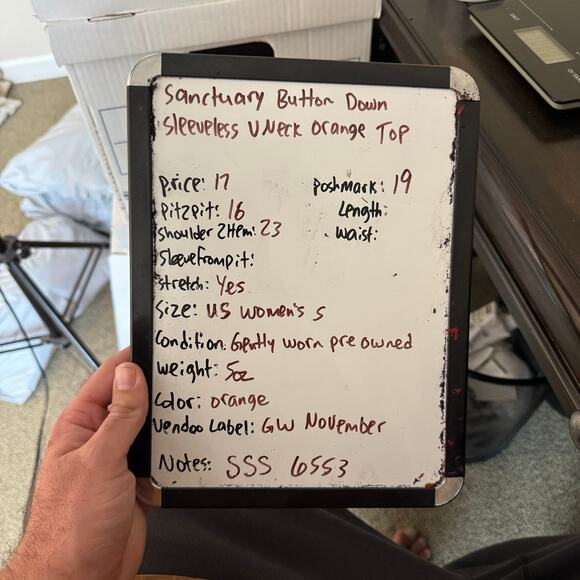 Sanctuary Button Down
Sleeveless V Neck Orange Top
price: 17 poshmark: 19
Pit2pit: 16 Length:
Shoulder 2 Hem: 23 waist:
Sleevefrompit:
stretch: Yes
Size: US women's S
Condition: Gently worn pre owned
weight: 5oz
Color: orange
Vendoo Label: GW November
Notes: SSS 6553